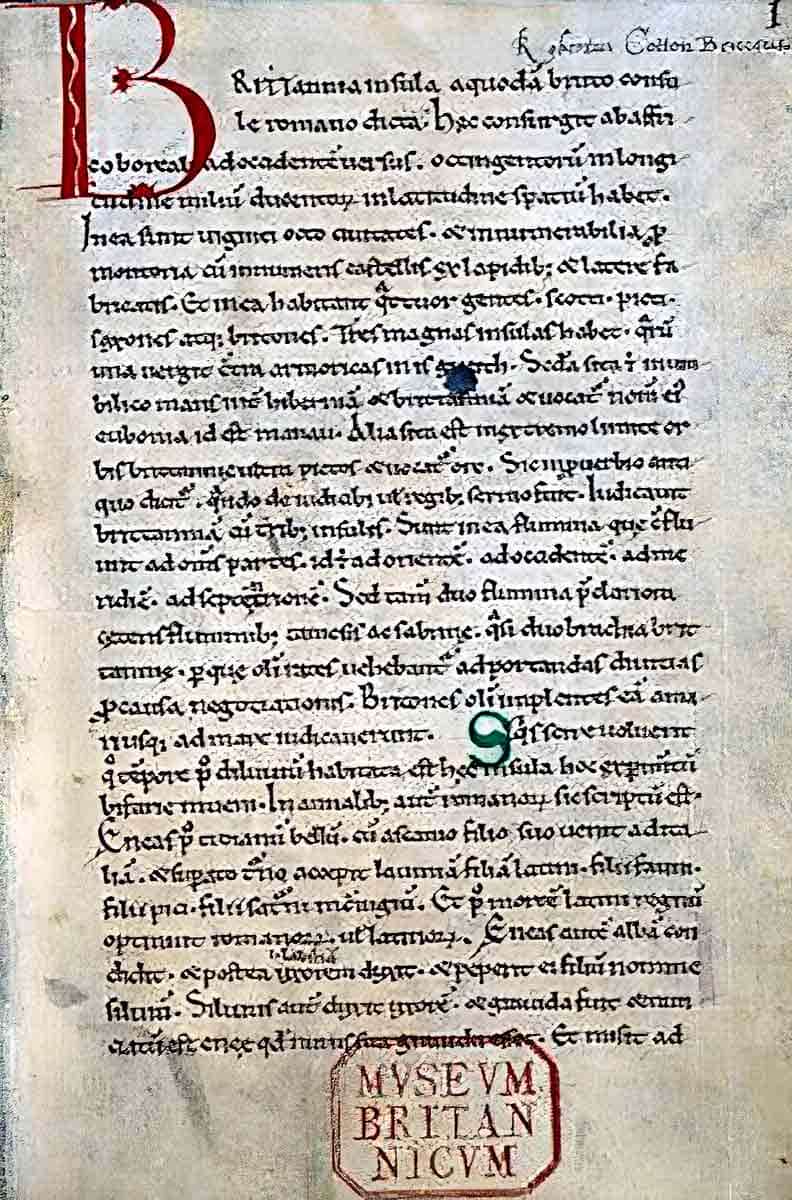 1
Robertus Cotton Bruceus
BRITTannia insula a quodā bruto consu
le romano dicta; Hęc consurgit ab affri
co boreali ad occidentē uersus. octingentorū in longi
tudine miliū ducentorꝝ in latitudine spatiū habet.
In ea sunt uiginti octo ciuitates. & innumerabilia ꝓ
montoria cū innumeris castellis ex lapidibꝫ & latere fa
bricatis. Et in ea habitant qͣttuor gentes. scotti. picti.
saxones atqꝫ brittones. Tres magnas insulas habet. qͣrū
una uergit cͦtra armoricas
bilico maris int̄ hiberniā & brittanniā & uocat᷑ nom̄ ei᷒
eubonia id est manau. Alia sita est in extremo limite or
bis brittannię ultra pictos & uocat᷑ orc. Sic in puerbio anti
quo dicit᷑. qn̄do de iudicibꝫ ul̄ regibꝫ sermo fuit. Iudicauit
brittanniā cū tribꝫ insulis. Sunt in ea flumina quę cͦflu
unt ad om̄s partes. id ÷ ad orientē. ad occidentē. ad me
ridiē. ad septētrionē. Sed tam̄ duo flumina p̄clariora
ceteris fluminibꝫ tamesis ac sabrinę. qͣsi duo brachia brit
tannię. ꝑ quę oli rates uehebant᷑ ad portandas diuitias
ꝓ causa negociationis. Brittones oli implentes eā a ma
ri usqꝫ ad mare iudicauerunt. Si qͥs scire uoluerit
qͦ tēpore pͦ diluuiū habitata est hęc insula hoc exꝑimtū
bifarie inueni. In annalibꝫ aut̄ romanorꝝ sic scriptū est.
Eneas pͦ troianū bellū. cū ascanio filio suo uenit ad ita
liā. & supato turno accepit lauiniā filiā latini. filii fauni.
filii pici. filii saturni in cͦiugiū. Et pͦ mortē latini regnū
optinuit romanorꝝ. ul̄ latinorꝝ. Eneas autē albā con
didit. & postea uxorem duxit. & peperit ei filiū nomine
siluiū. Siluius aut̄ duxit uxorē. & grauida fuit & nun
ciatū est eneę qd̄ nurus sua grauida esset. Et misit ad
MVSEVM
BRITAN
NICVM